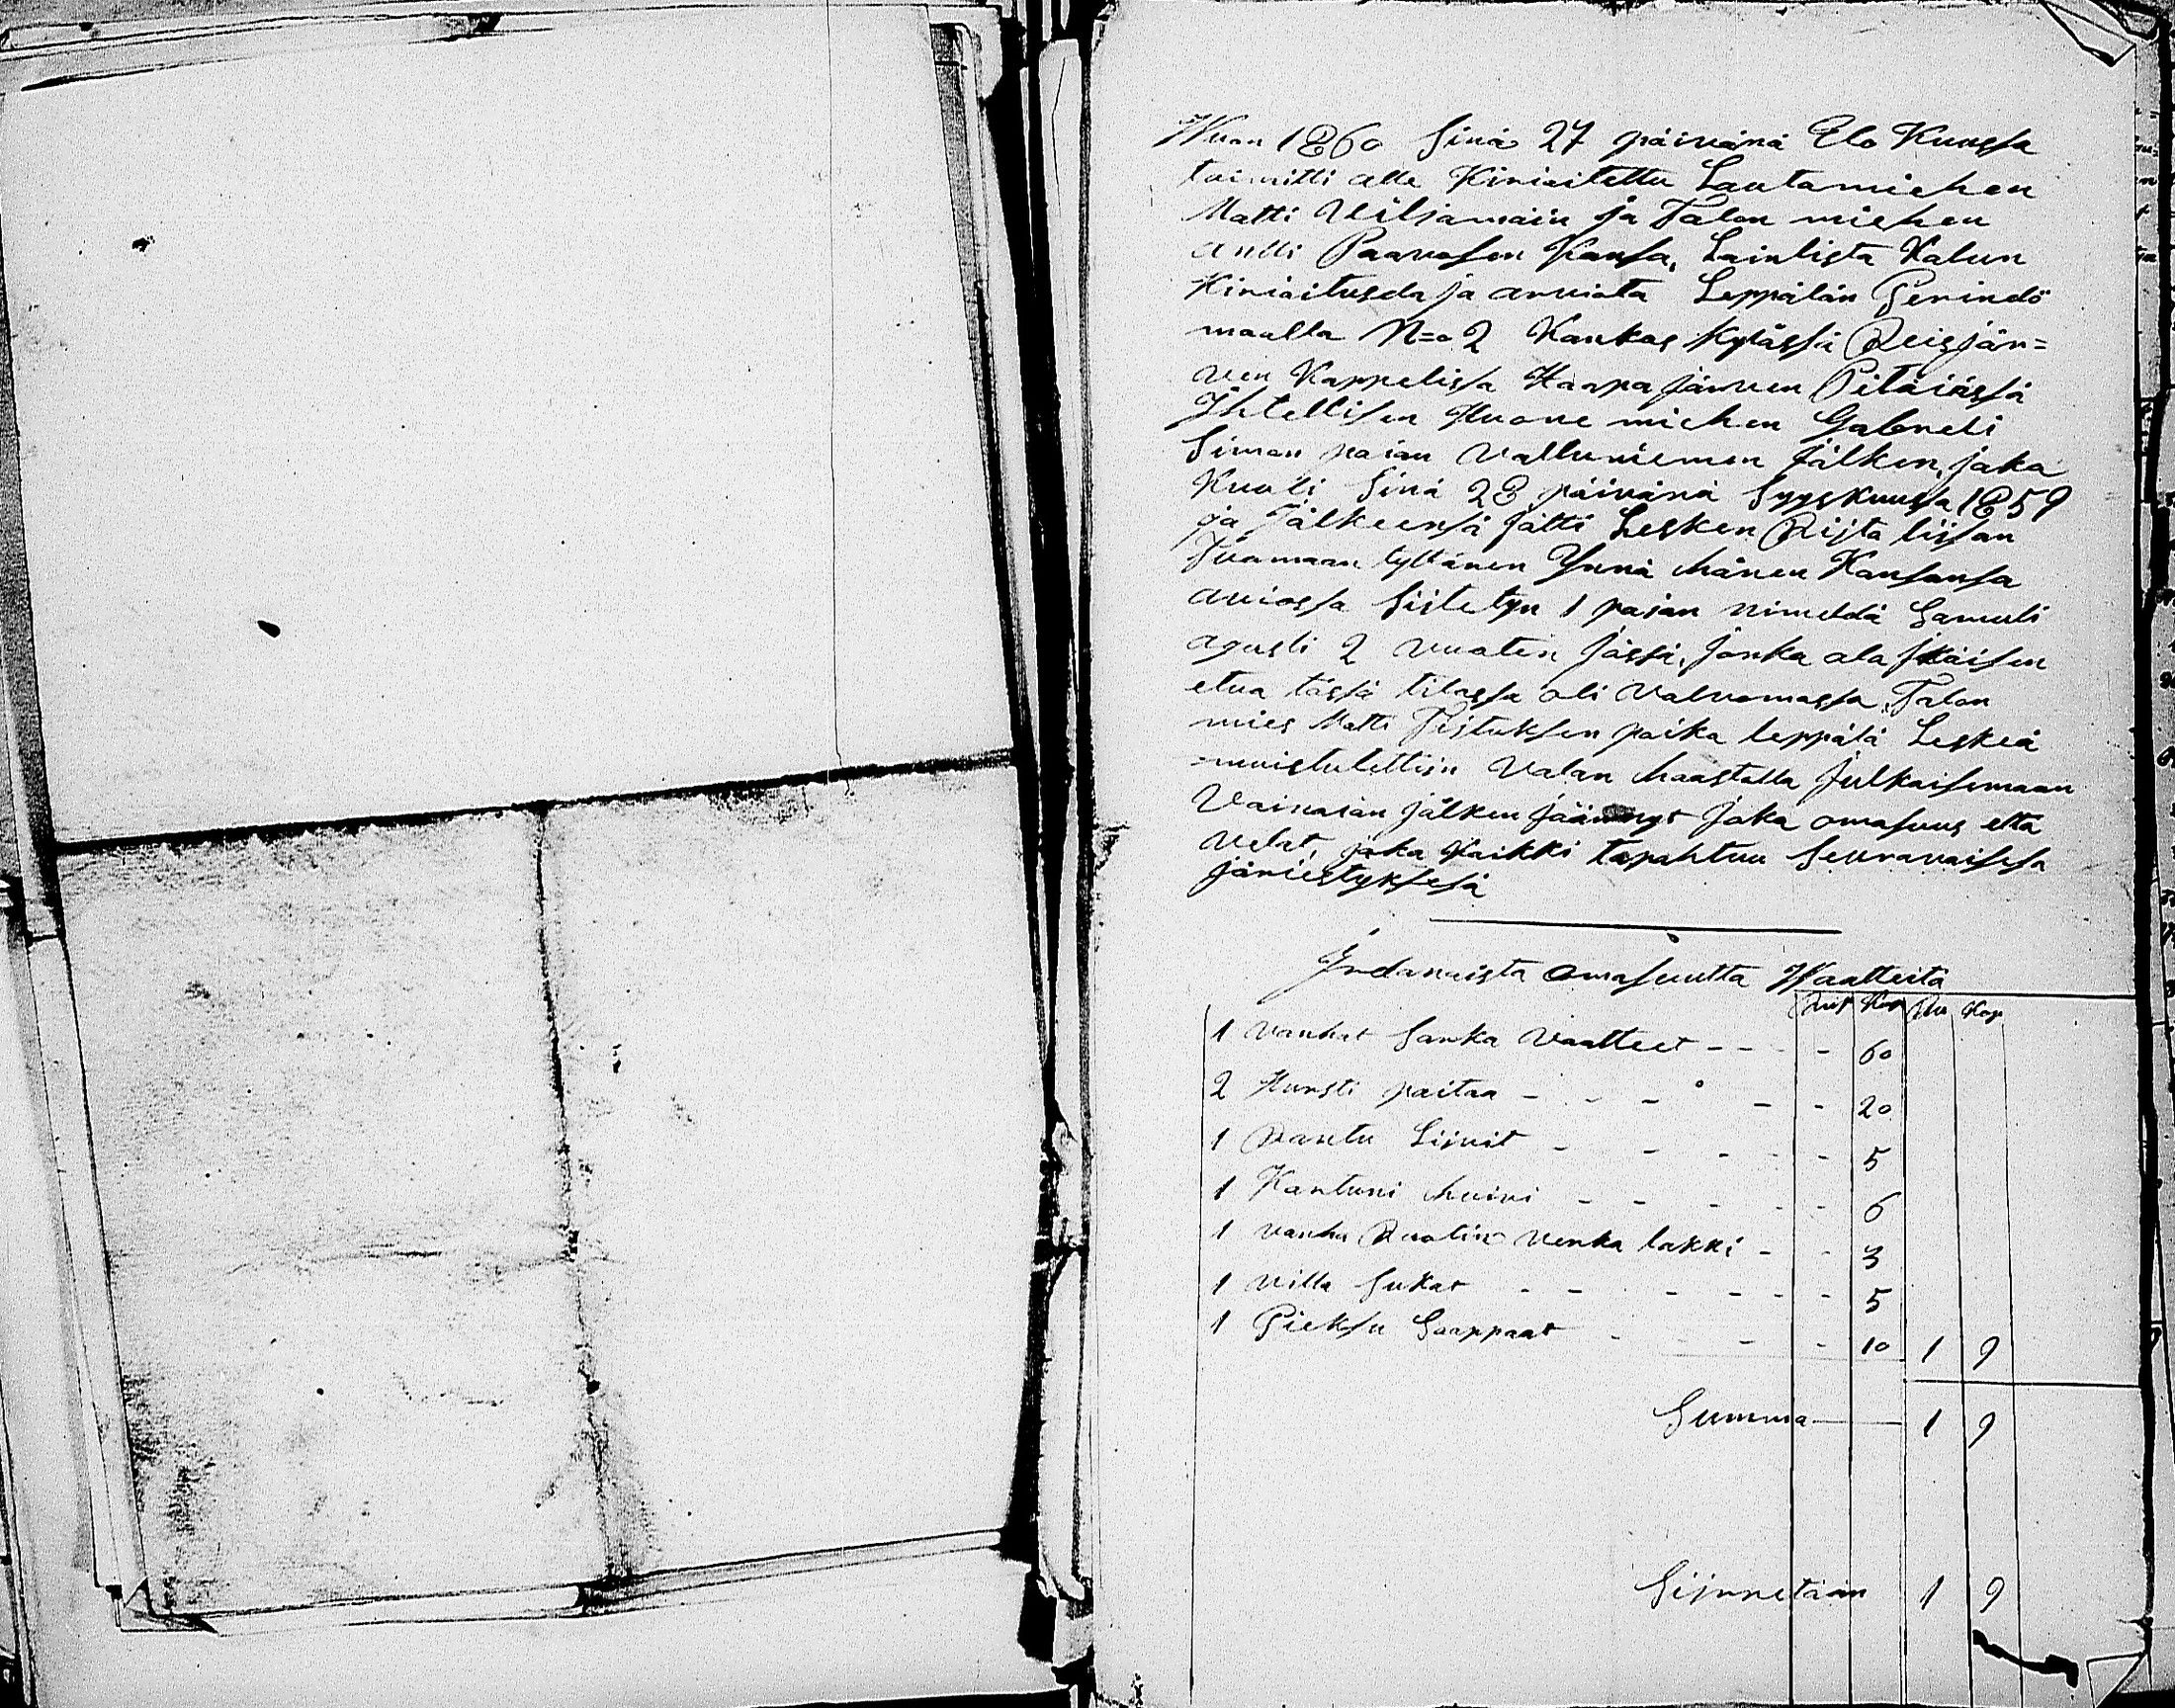 Wuon 1860 Sinä 27 päivänä Elo Kuussa
toimitti alle Kirioitettu Lautamiehen
Matti Viljamäin ja Talon miehen
Antti Paavosen Kansa, Lainlista Kalun
Kirioitusda ja arviota Leppälän Perindö
maalla N=o 2 Kankas Kylässä Reisjär=
ven Kappelissa Haapa järven Pitäiässä
Ihtellisen Huone miehen Gabrieli
Siman poian Valluniemen Jälken, joka
Kuoli Sinä 28 päivänä Syyskuussa 1859
ja Jälkeensä Jätti Lesken Riijta liisan
Tuomaan tyttären Ynnä hänen Kansansa
aviossa Siitetyn 1 poian nimeldä Samuli
agusti 2 vuoten Jässä, Jonka ala Jkäisen
etua tässä tilassa oli Valvomassa, Talon
mies Matti Tistuksen poika leppälä Leskeä
muistutettiin Valan haastolla Julkaisemaan
Vainaian Jälken Jäännyt Joka omasuus että
velat, joka Kaikki tapahtuu Seuravaisesa
järiestyksesä
Irdanuista omasuutta Waatteita
Rup Kop Ru Kop
1 vanhat Sarka Vaatteet - - - - 60
2 Hursti paitaa - - - - - 20
1 Rantu Liivit - - - - - 5
1 Kartuni huivi - - - - - 6
1 vanha Ruotin verka lakki - - 3
1 villa Sukat - - - - - - 5
1 Pieksu Saappaat - - - 10 1 9
Summa 1 9
Siirretään 1 9